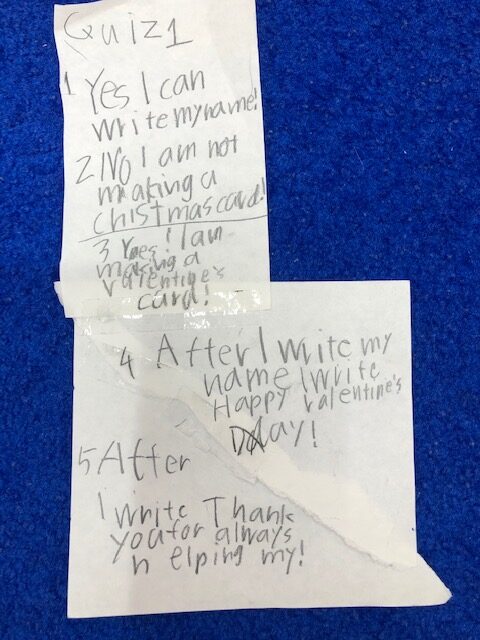 Quiz 1
1 Yes I can
write my name!
2 No I am not
making a
chistmas card!
3 Yes! I am
making a
valentine's
card!
4 After I write my
name I write
Happy valentine's
Day!
5 After
I write Thank
you for always
helping my!